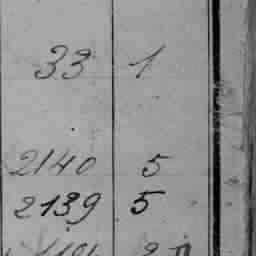 33 1
2140 5
2139 5